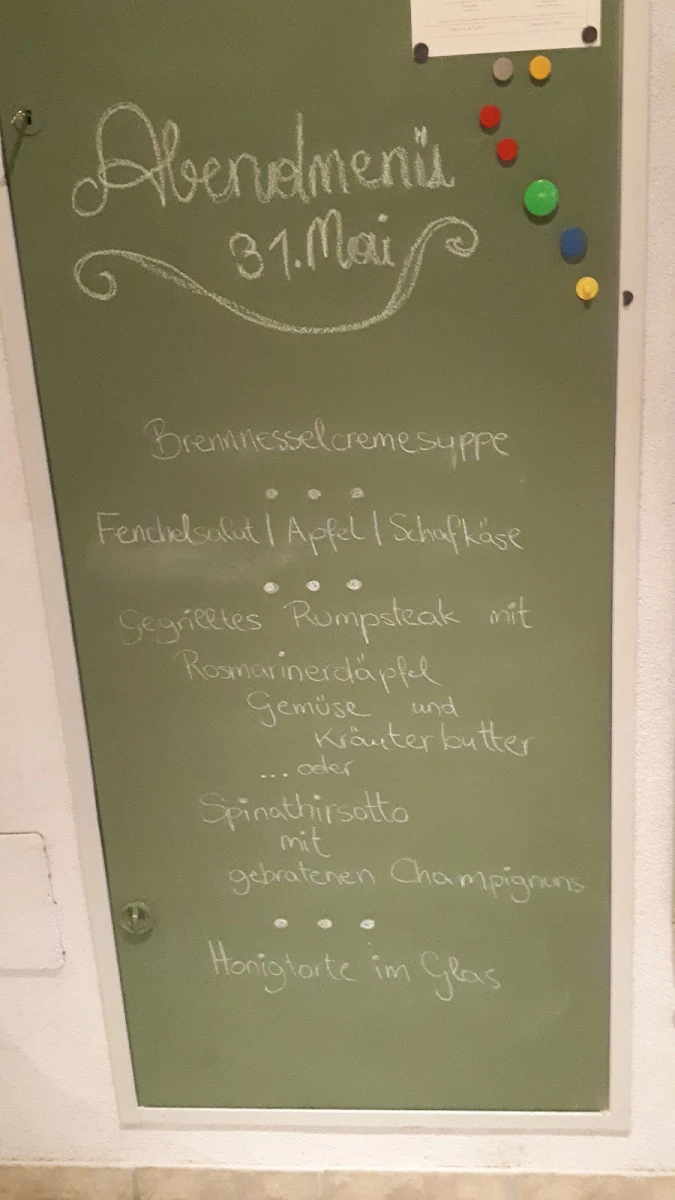 Abendmenü
31. Mai
Brennnesselcremesuppe
Fenchelsalat / Apfel / Schafkäse
Gegrilltes Rumpsteak mit
Rosmarinerdäpfel
Gemüse und
Kräuterbutter
... oder
Spinathirsotto
mit
gebratenen Champignons
Honigtorte im Glas